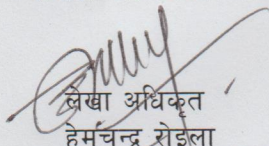 लेखा अधिकृत
हेमचन्द्र रोईला